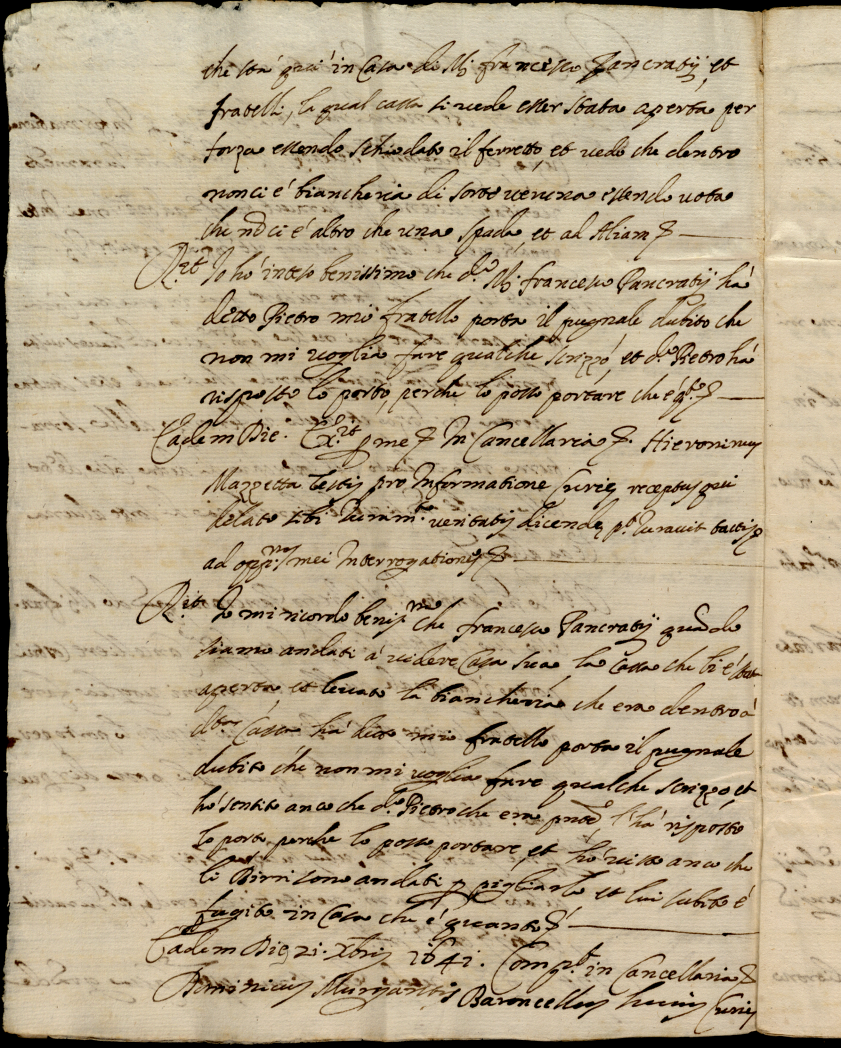 che sta quà in Casa de M. francesco Pancratij, et
fratelli, la qual cassa si vede esser stata aperta per
forza essendo schiodato il ferretto, et vedo che dentro
non ci é biancheria di sorte veruna essendo vota
che nō ci é altro che una spada, et ad aliam
Rit Io hó inteso benissimo che d.o M. francesco Pancratij há
detto Pietro mio fratello porta il pugnale dubito che
non mi voglia fare qualche scrizzo, et d.o Pietro há
risposto lo porto, perche lo posso portare che é q.to
Eadem Die. Ex.t p me In Cancellaria Hieronimus
Mazzetta testis pro Informatione Curie receptus qui
delato sibi Juram.to veritatis dicende, p.t Juravit tactis
ad opp.nas mei Interrogationes
Rit Io mi ricordo beniss.mo che francesco Pancratij quādo
siamo andati á videre Casa sua la Cassa che li é stata
aperta et levato la biancheria che era dentro á
d.ta Cassa há detto mio fratello porta il pugnale
dubito che non mi voglia fare qualche scrizzo, et
hó sentito anco che d.o Pietro che era pnte l'há risposto
lo porto, perche lo posso portare et hó visto anco che
li Birri sono andati p pigliarlo et lui subito é
fugito in Casa che é quanto
Eadem Die 21. Xbris 1641. Comp.t in Cancellaria
Dominicus Baroncellus huius Curie